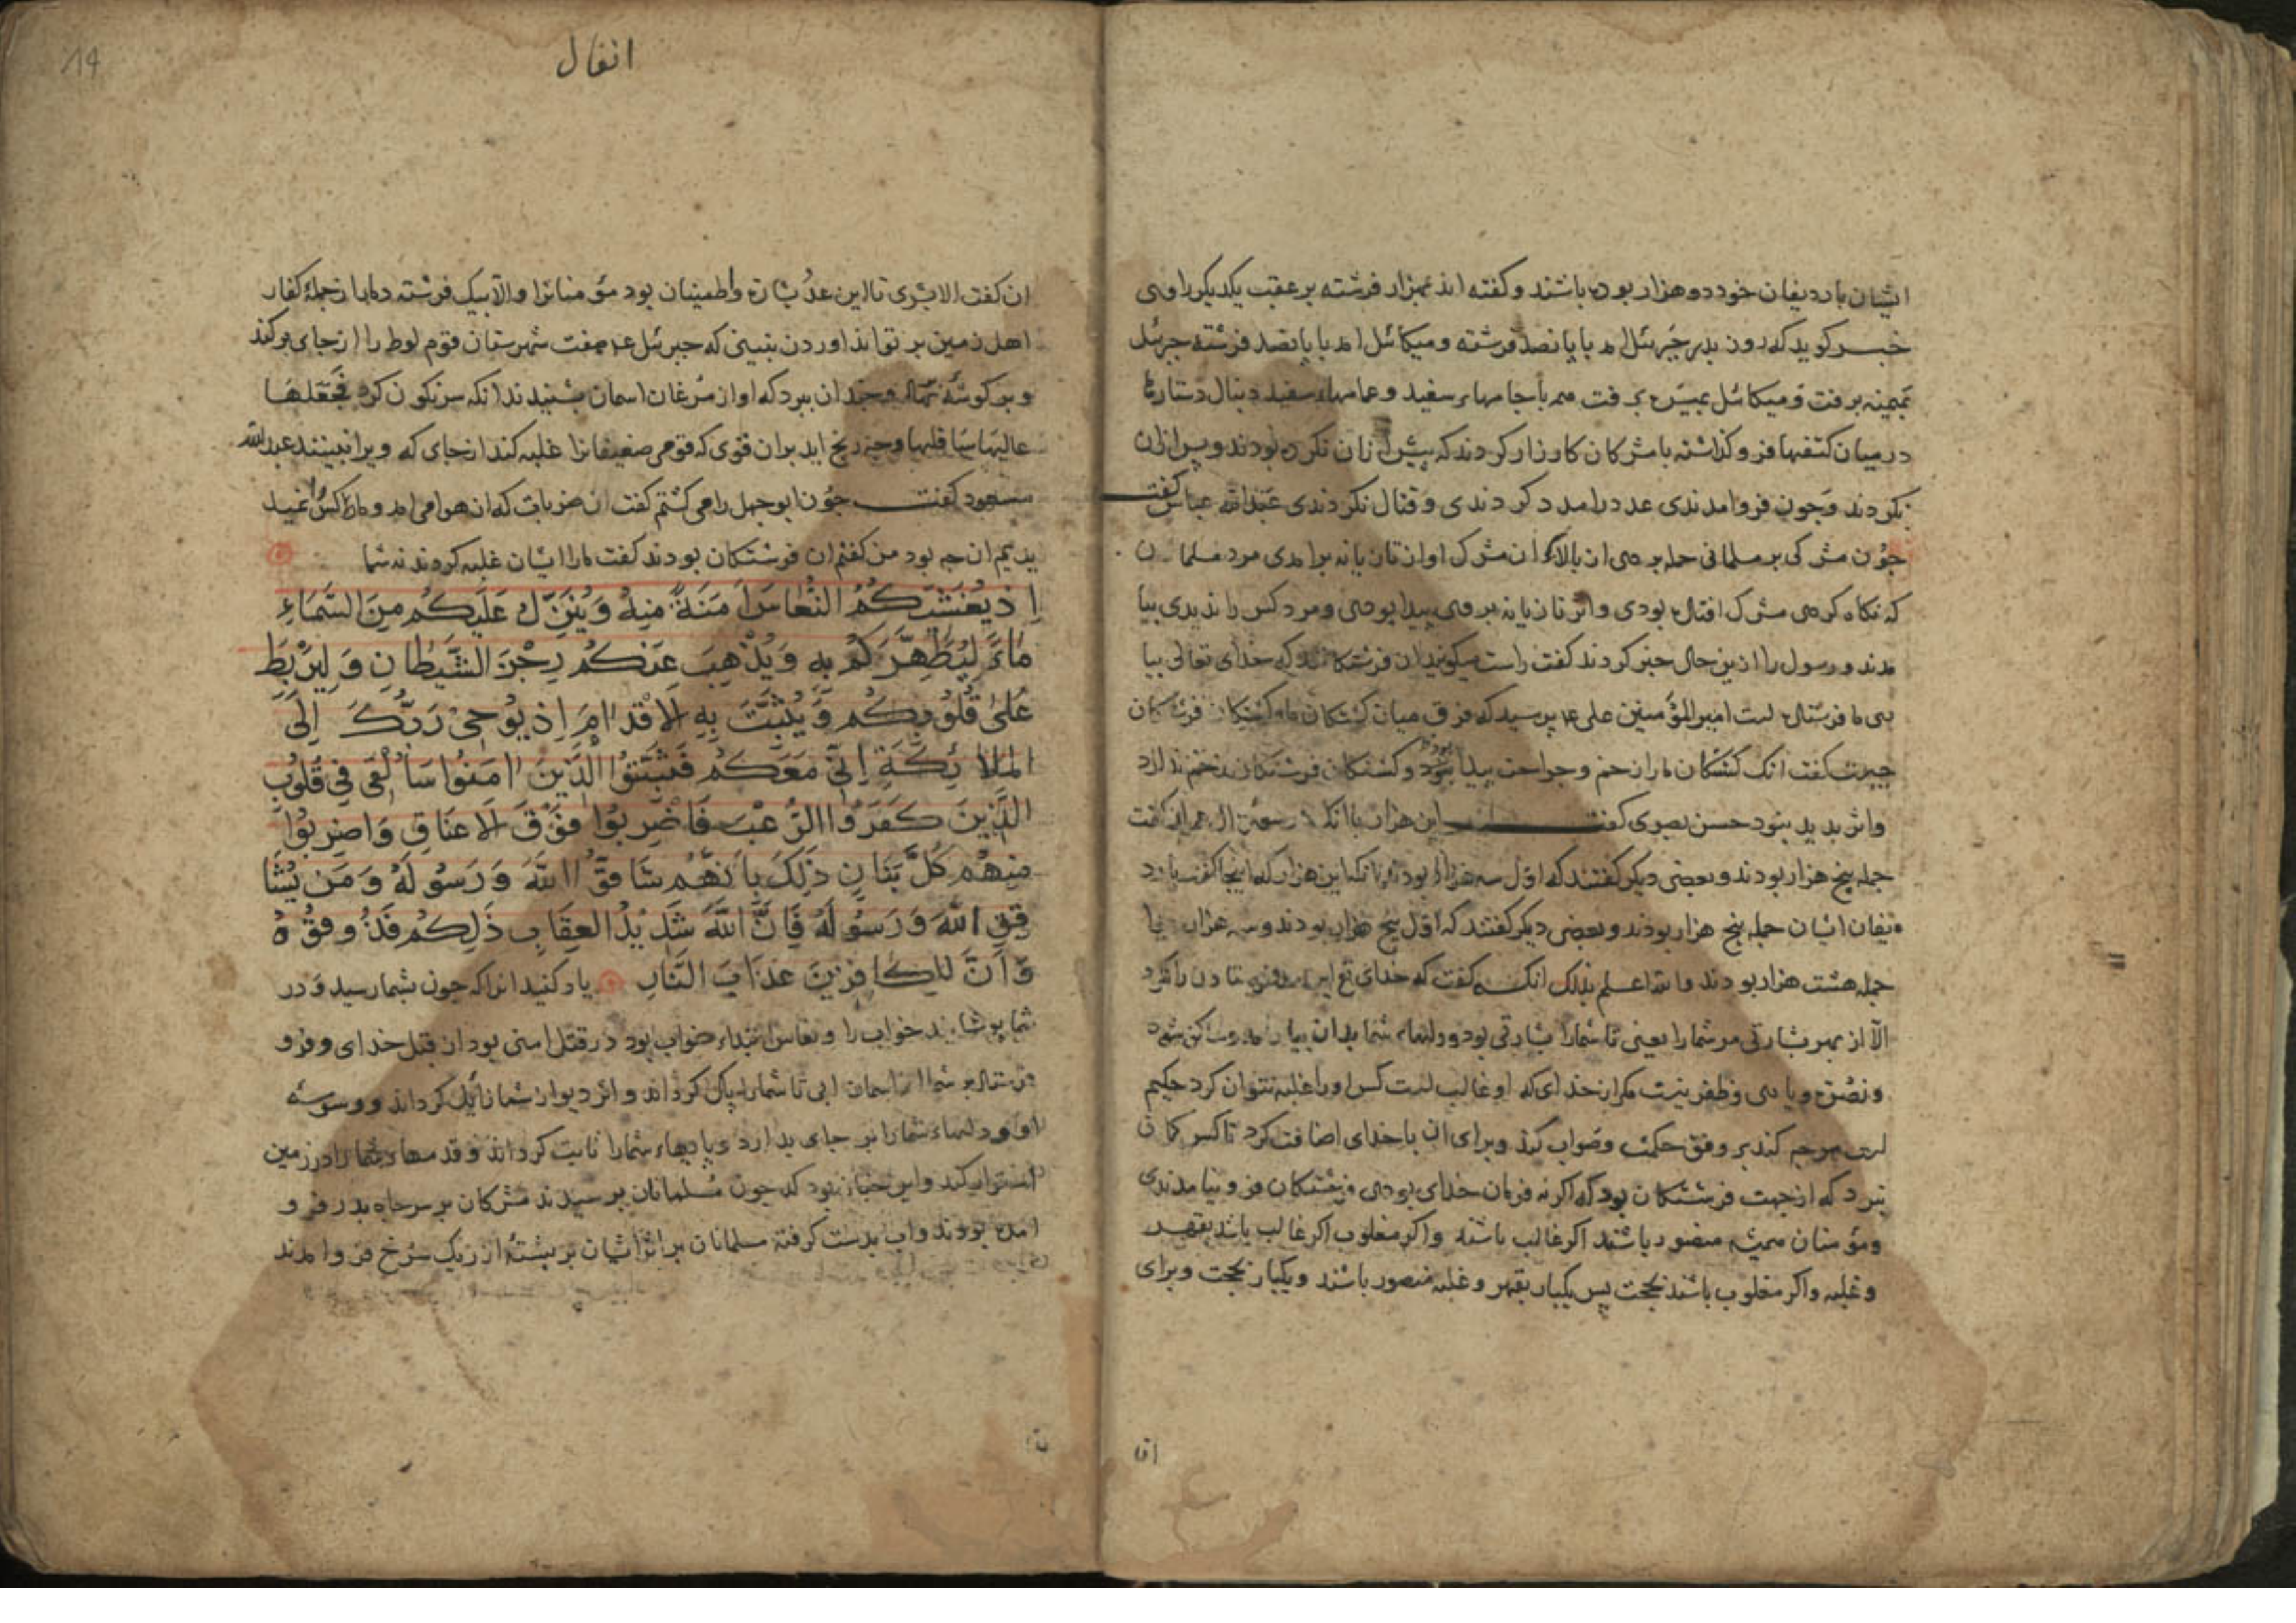 ایشان با ردیفان خود دو هزار بوده باشند و گفته اند هزار فرشته بر عقب یکدیگر راوی
خبر کوید که روز بدر جبرئیل امد با پانصد فرشته و میکائیل امد با پانصد فرشته جبرئیل
بمیمنه برفت و میکائیل بمیسره برفت همه با جامهاء سفید و عمامهاء سفید دنبال دستارها
در میان کتفها فرو کذاشته با مشرکان کارزار کردند که پیش از ان نکرده بودند و پس از ان
نکردند و جون فرو امدندی عدد را مدد کردندی و قتال نکردندی عبدالله عباس کفت
جون مشرکی بر مسلمانی حمله بردی از بالاء ان مشرک اواز تازیانه برامدی مرد مسلمان
که نکاه کردی مشرک افتاده بودی و اثر تازیانه بر وی پیدا بودی و مرد کس را ندیدی بیا
مدند و رسول را ازین حال خبر کردند کفت راست میکویند ان فرشتکانند که خدای تعالی بیا
ری ما فرستاده است امیر المؤمنین علی ع را پرسید که فرق میان کشتکان ما و کشتکان فرشتکان
جیست کفت انک کشتکان ما را زخم و جراحت پیدا بود و کشتکان فرشتکان زخم ندارد
و اثر پدید نبود حسن بصری کفت این هزار با انک در سورة ال عمران کفت
جمله پنج هزار بودند و بعضی دیکر کفتند که اول سه هزار بودند تا نکه این هزار که اینجا کفت با رد
یفان ایشان جمله پنج هزار بودند و بعضی دیکر کفتند که اول پنج هزار بودند و سه هزار
جمله هشت هزار بودند والله اعلم بذلک انکه کفت که خدای تع این
الا از بهر بشارتی مر شما را یعنی تا شما را بشارتی بود و دلهاء شما بدان بیارامد و ساکن شود
و نصرة و یاری و ظفر نیست مکر از خدای که او غالب است کس او را غلبه نتوان کرد حکیم
است هر چه کند بر وفق حکمت و صواب کند و برای ان با خدای اضافت کرد تا کس کمان
نبرد که از جهت فرشتکان بود که اکر نه فرمان خدای بودی فرشتکان فرو نیامدندی
و مؤمنان همیشه منصور باشند اکر غالب باشند و اکر مغلوب اکر غالب باشند بقهر
و غلبه و اکر مغلوب باشند بحجت پس یکبار بقهر و غلبه منصور باشند و یکبار بحجت و برای
انفال
ان کفت الا بشری تا این عدد بشارت و اطمینان بود مؤمنانرا و الا بیک فرشته دمار از جمله کفار
اهل زمین بر تواند اوردن نبینی که جبرئیل ع هفت شهرستان قوم لوط را از جای برکند
و بر کوشه نهاد و جندان ببرد که اواز مرغان اسمان بشنیدند انکه سرنکون کرد فجعلها
عالیها سافلها و چه رنج اید بران قوی که قومی ضعیفانرا غلبه کند از جای که ویرا نبینند عبدالله
مسعود کفت جون ابوجهل را می کشتم کفت ان ضربات که از هوا می امد و ما کس را نمید
یدیم ان چه بود من کفتم ان فرشتکان بودند کفت ما را ایشان غلبه کردند نه شما
اِذ یُغَشِّیکُمُ النُّعاسَ اَمَنَةً مِنهُ وَیُنَزِّلُ عَلَیکُم مِنَ السَّمَاءِ
مَاءً لِیُطَهِّرَکُم بِهِ وَیُذهِبَ عَنکُم رِجزَ الشَّیطَانِ وَلِیَربِطَ
عَلیٰ قُلُوبِکُم وَیُثَبِّتَ بِهِ الاَقدَامَ اِذ یُوحِی رَبُّکَ اِلَی
المَلائِکَةِ اِنِّی مَعَکُم فَثَبِّتُوا الَّذِینَ امَنُوا سَاُلقِی فِی قُلُوبِ
الَّذِینَ کَفَرُوا الرُّعبَ فَاضرِبُوا فَوقَ الاَعنَاقِ وَاضرِبُوا
مِنهُم کُلَّ بَنَانٍ ذَلِکَ بِاَنَّهُم شَاقُّوا اللّٰهَ وَرَسُولَهُ وَمَن یُشَا
قِقِ اللّٰهَ وَرَسُولَهُ فَاِنَّ اللّٰهَ شَدِیدُ العِقَابِ ذَلِکُم فَذُوقُوهُ
وَاَنَّ لِلکَافِرِینَ عَذَابَ النَّارِ یاد کنید انرا که جون بشما رسید و در
شما پوشانید خواب را و نعاس ابتداء خواب بود در قتل امنی بود از قبل خدای و فرو
فرستاد بر شما از اسمان ابی تا شما را پاک کرداند و اثر دیو از شما زایل کرداند و وسوسه
او و دلهاء شما را بر جای بدارد و پایهاء شما را ثابت کرداند و قدمهاء شما را در زمین
استوار کند و این جنان بود که جون مسلمانان برسیدند مشرکان بر سر چاه بدر فرو
امده بودند و اب بدست کرفته مسلمانان بر اثر ایشان بر پشتهٔ از ریک سرخ فرو امدند